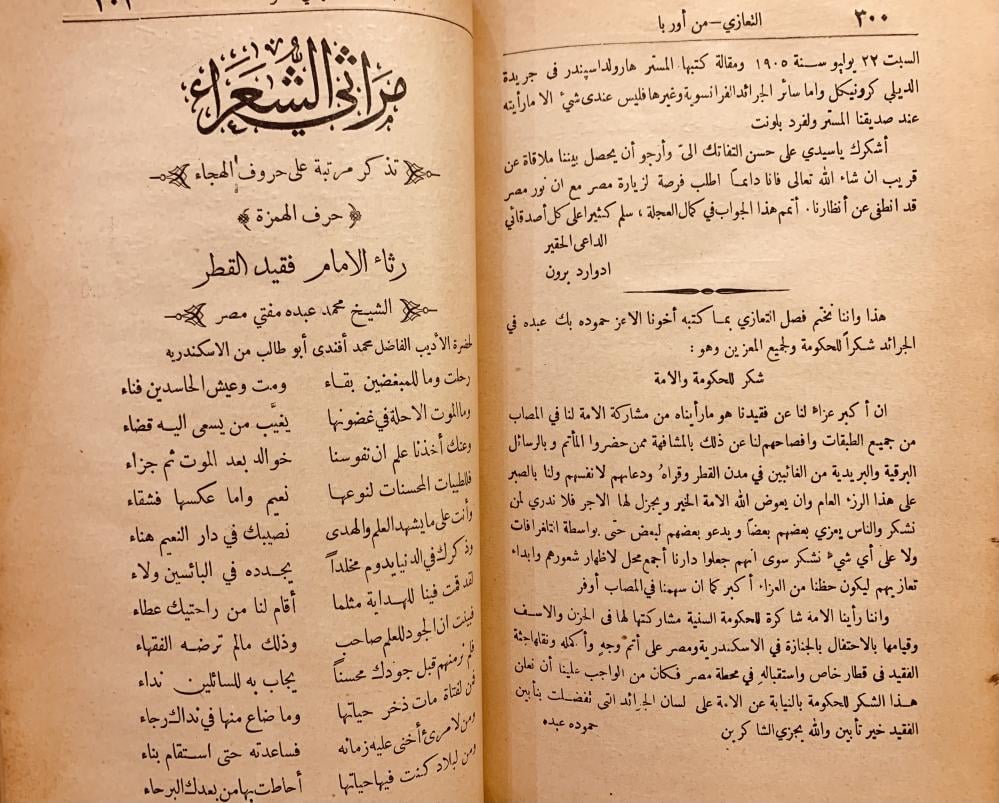 ٣٠٠
التعازي — من أوربا
السبت ٢٢ يوليو سنة ١٩٠٥ ومقالة كتبها المستر هارولد اسپندر فى جريدة
الديلي كرونيكل واما سائر الجرائد الفرانسوية وغيرها فليس عندى شيُ الا ما رأيته
عند صديقنا المستر ولفرد بلونت
أشكرك ياسيدي على حسن التفاتك الىّ وأرجو أن يحصل بيننا ملاقاة عن
قريب ان شاء الله تعالى فانا دائمـاً اطلب فرصة لزيارة مصر مع ان نور مصر
قد انطفى عن أنظارنا. أتمم هذا الجواب في كمال العجلة ، سلم كثيرا على كل أصدقائي
الداعى الحقير
ادوارد برون
هذا واننا نختم فصل التعازي بمـا كتبه أخونا الاعز حموده بك عبده في
الجرائد شكراً للحكومة ولجميع المعزين وهو :
شكر للحكومة والامة
ان أكبر عزاء لنا عن فقيدنا هو مارأيناه من مشاركة الامة لنا في المصاب
من جميع الطبقات وافصاحهم لنا عن ذلك بالمشافهة ممن حضروا المأتم وبالرسائل
البرقية والبريدية من الغائبين في مدن القطر وقراهُ ودعاءهم لانفسهم ولنا بالصبر
على هذا الرزء العام وان يعوض الله الامة الخير ويجزل لها الاجر فلا ندري لمن
نشكر والناس يعزي بعضهم بعضاً ويدعو بعضهم لبعض حتى بواسطة التلغرافات
ولا على أي شيُ نشكر سوى انهم جعلوا دارنا أجمع محل لاظهار شعورهم وابداء
تعازيهم ليكون حظنا من العزاء أكبر كما ان سهمنا في المصاب أوفر
واننا رأينا الامة شاكرة للحكومة السنية مشاركتها لها فى الحزن والاسف
وقيامها بالاحتفال بالجنازة في الاسكندرية ومصر على أتم وجه وأكمله ونقلها جثة
الفقيد فى قطار خاص واستقباله في محطة مصر فكان من الواجب علينا أن نعلن
هذا الشكر للحكومة بالنيابة عن الامة على لسان الجرائد التى تفضلت بتأبين
الفقيد خير تأبين والله يجزي الشاكرين
حموده عبده
مراثي الشعراء
تذكر مرتبة على حروف الهجاء
﴿ حرف الهمزة ﴾
رثاء الامام فقيد القطر
الشيخ محمد عبده مفتي مصر
لحضرة الأديب الفاضل محمد أفندى أبو طالب من الاسكندريه
رحلت وما للمبغضين بقـاء ومت وعيش الحاسدين فناء
وما الموت الا حلة في غضونها يغيَّب من يسعى اليـه قضاء
وعنك أخذنا علم ان نفوسنا خوالد بعد الموت ثم جزاء
فللطيبات المحسنات لنوعها نعيم واما عكسها فشقاء
وأنت على ما يشهد العلم والهدى نصيبك في دار النعيم هناء
وذكرك في الدنيا يدوم مخلداً يجـدده في البائسين ولاء
لقد قمت فينا للهـداية مثلما أقام لنا من راحتيك عطاء
فبينت ان الجود للعلم صاحب وذلك مالم ترضـه الفقهاء
فلم نر منهم قبل جودك محسناً يجاب به للسائلين نداء
فمن لفتاة مات ذخر حياتها وما ضاع منها في نداك رجاء
ومن لامرئ أخنى عليه زمانه فساعدته حتى استقام بناء
ومن لبلاد كنت فيها حياتها أحاطت بها من بعدك البرحاء